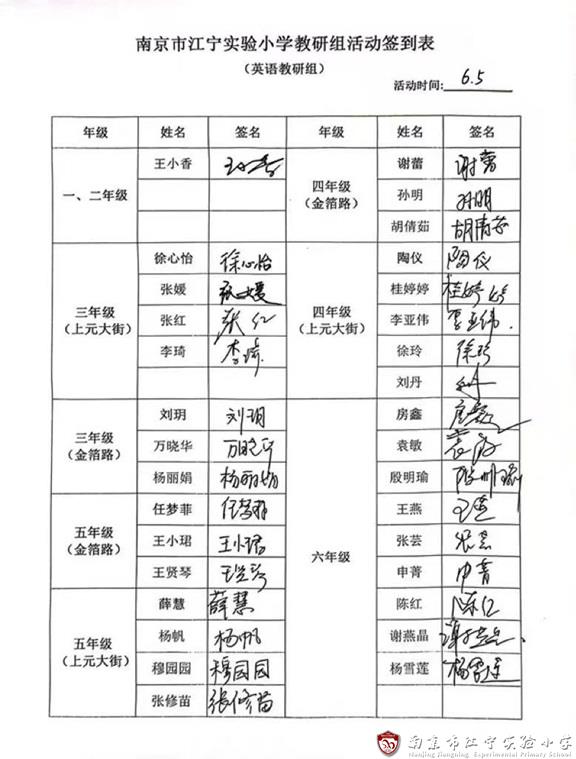 南京市江宁实验小学教研组活动签到表
（英语教研组）
活动时间: 6.5
年级 姓名 签名 年级 姓名 签名
一、二年级 王小香
四年级（金箔路） 谢蕾 谢蕾
孙明 孙明
胡倩茹 胡倩茹
三年级（上元大街） 徐心怡 徐心怡
张媛 张媛
张红 张红
李琦 李琦
四年级（上元大街） 陶仪 陶仪
桂婷婷 桂婷婷
李亚伟 李亚伟
徐玲 徐玲
刘丹
三年级（金箔路） 刘玥 刘玥
万晓华 万晓华
杨丽娟 杨丽娟
五年级（金箔路） 任梦菲 任梦菲
王小珺 王小珺
王贤琴 王贤琴
五年级（上元大街） 薛慧 薛慧
杨帆 杨帆
穆园园 穆园园
张修苗 張修苗
六年级 房鑫
袁敏 袁敏
殷明瑜 殷明瑜
王燕 王燕
张芸 张芸
申菁 申菁
陈红 陈红
谢燕晶
杨雪莲 杨雪莲
南京市江宁实验小学
Nanjing Jiangning Experimental Primary School